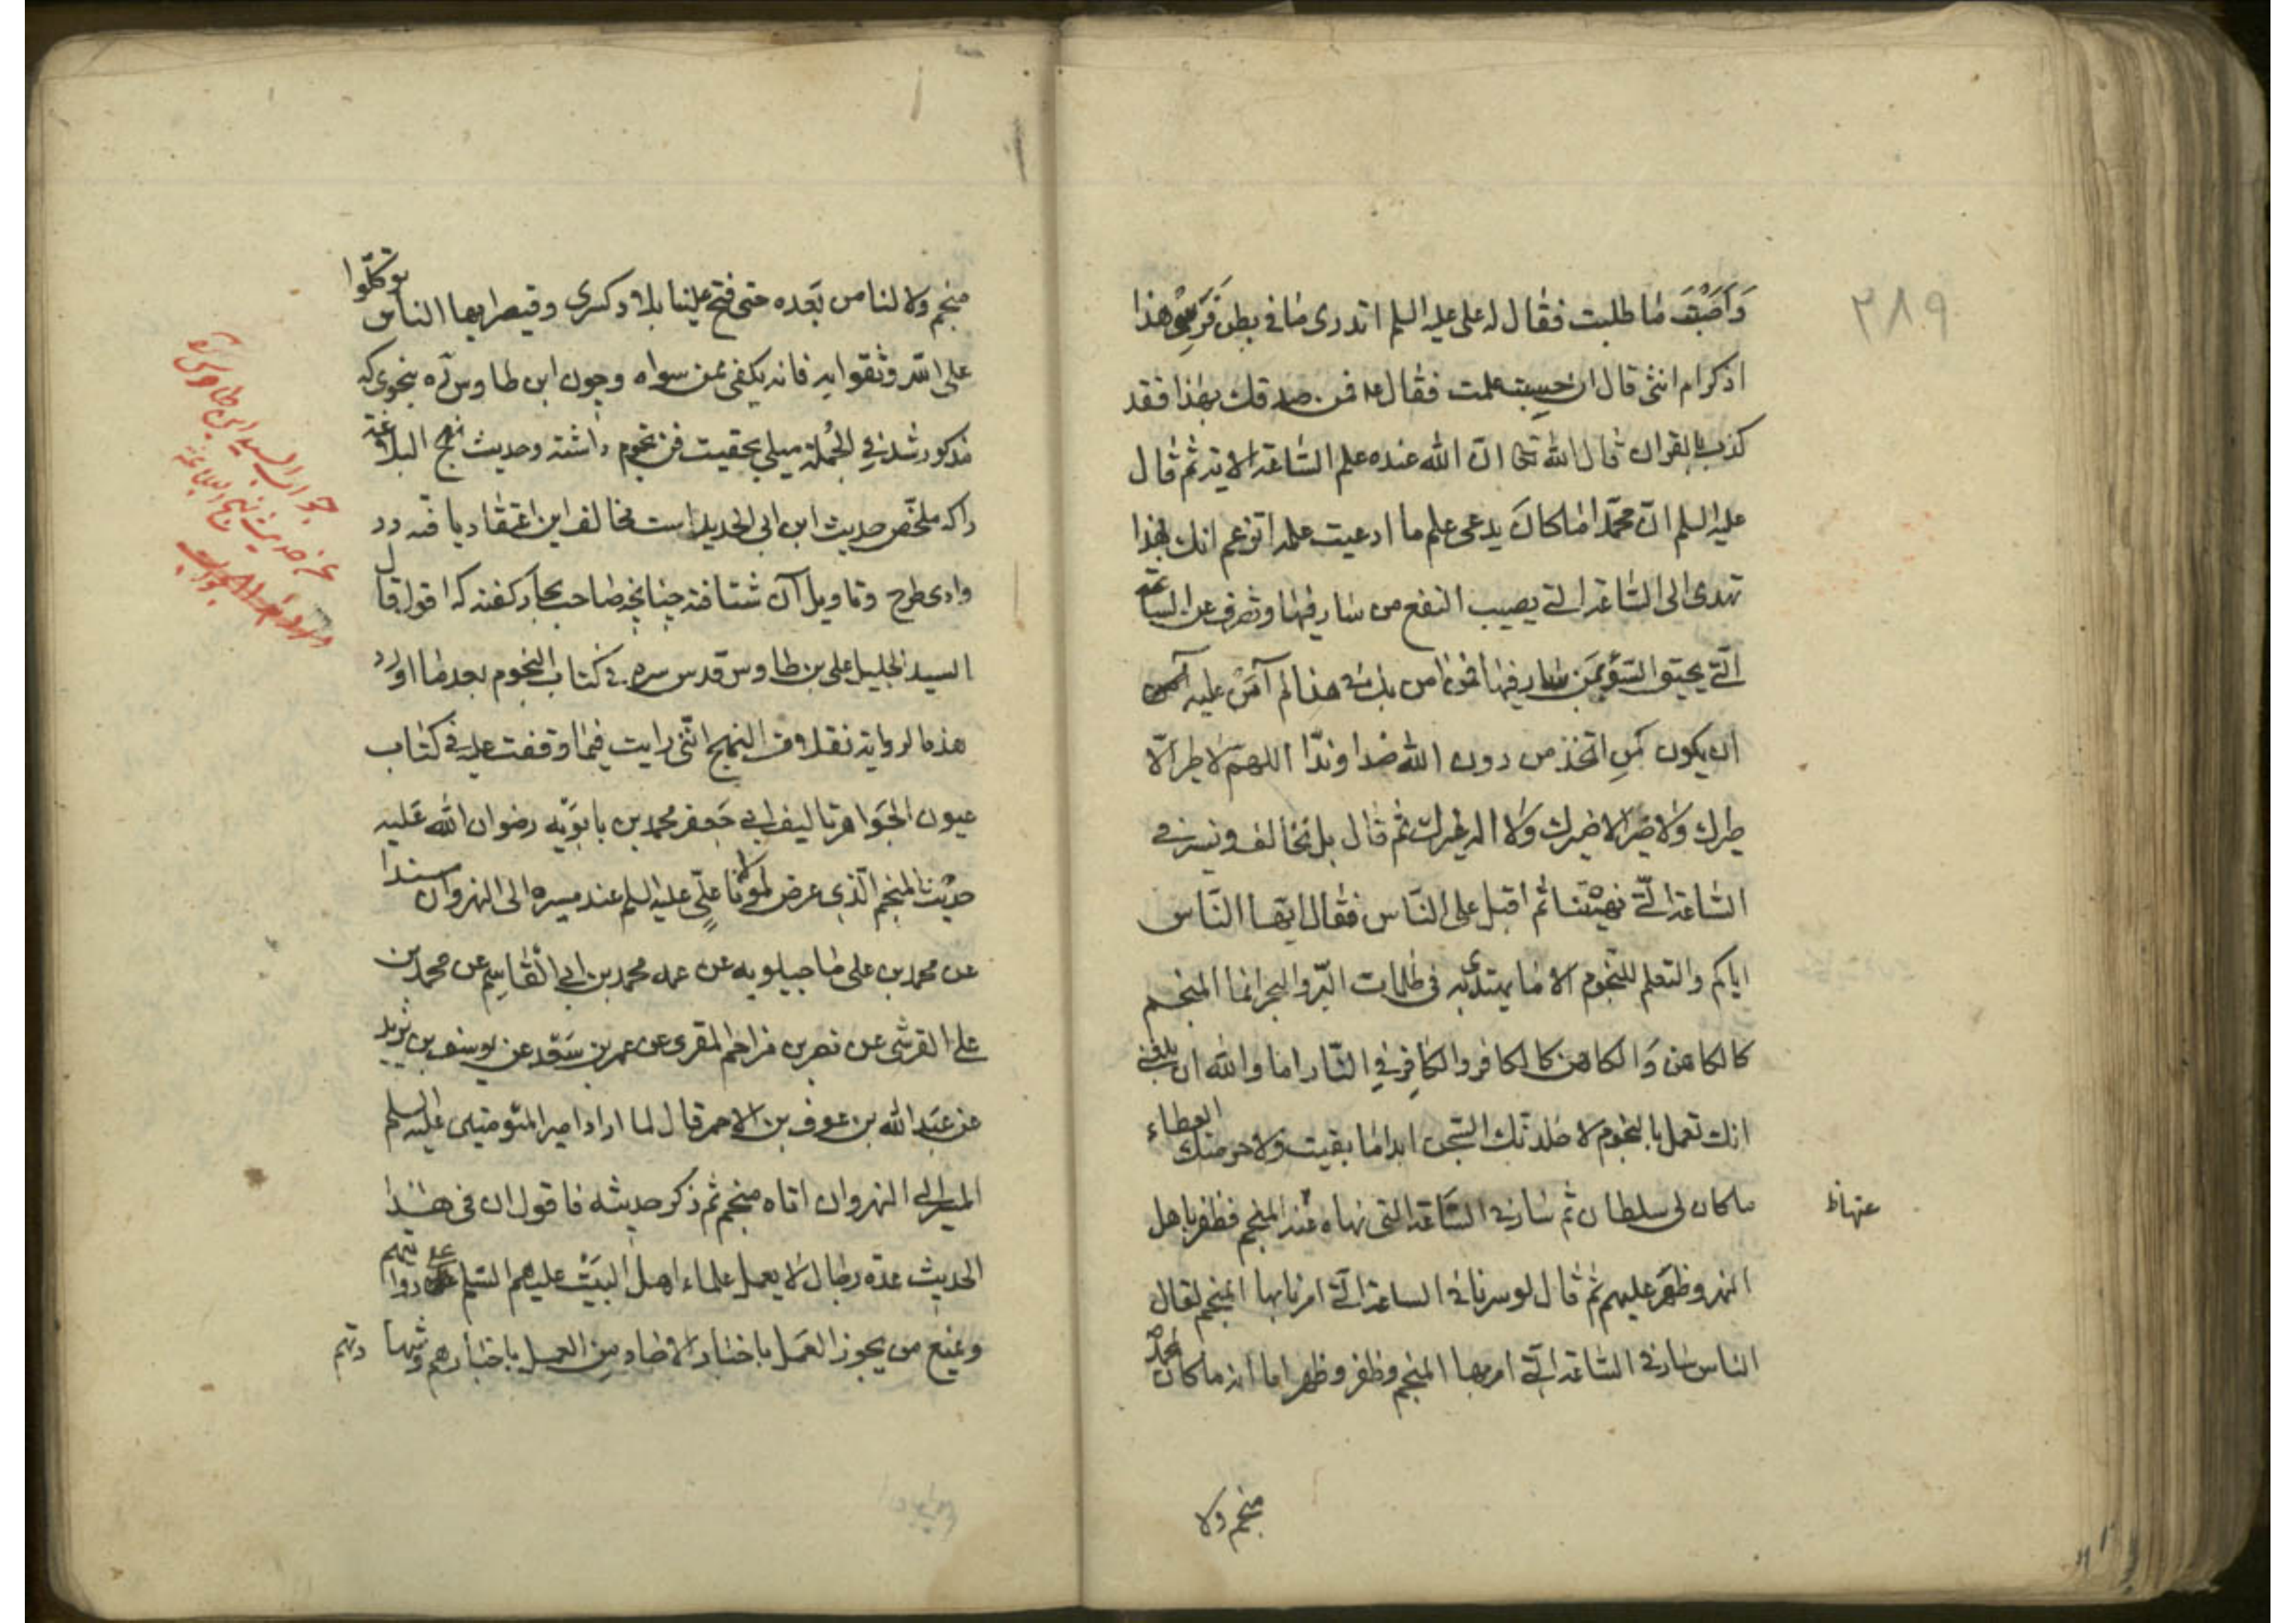 ۳۸۹
وَاَصَبْتَ مٰا طلبت فقٰال له على عليه السلم اتدرى مٰا فى بطن فَرَسِىْ هذا
اذكر ام انثى قال ان حسبت علمت فقٰال ع فمن صدقك بهٰذا فقد
كذب بالقران قٰال اللّٰه تعٰ انّ اللّٰه عنده علم السّٰاعة الاية ثم قٰال
عليه السلم انّ محمّدا مٰا كانَ يدعى علم ما ادعيت علمه اتزعم انك بهذا
تهدى الى السّٰاعة التى يصيب النفع من سٰار فيهٰا وتصرف عن السٰاعة
الّتى يحيق السّوء بمَن سٰار فيهٰا فمن اٰمن بك فى هذا لم آمَنْ عليه
ان يكون كمن اتّخذ من دون اللّٰه ضدا وندّا اللهمّ لا طير الّا
طيرك وَلا ضَرّ الا ضرك وَلا اله غيرك ثم قٰال بل نخٰالف ونسير فى
السّٰاعة الّتى نهيْتَنٰا ثم اقبل على النّاس فقٰال ايّها النّاس
اياكم والتعلم للنّجوم الا مٰا يهتدى به فى ظلمات البّر والبحر انما المنجم
كالكاهن وَالكاهن كالكافر والكٰافِر فى النّٰار اما واللّٰه ان بلغنى
انك تعمل بالنجوم لا خلدنّك السّجن ابدا مٰا بقيت ولاحرمنك العطاء
ماكان لى سلطان ثم سٰار فى السّٰاعة التى نهاه عنها المنجم فظفر باهل
عنهاظ
النهر وظهَر عليهم ثم قٰال لو سرنا فى الساعة الّتى امرنا بها المنجم لقال
الناس سٰار فى السّٰاعة الّتى امر بها المنجم وظفر وظهر اما انه ماكان لمحمد ص
منجم ولا
منجم ولا لنا من بَعده حتى فتح علينا بلاد كسرى وقيصر ايها الناس توكّلوا
على اللّٰه وثقوا به فانه يكفى ممن سواه وچون ابن طاوس ره بنحوى كه
مذكور شد فى الجُملة ميلى بحقيت فن نجوم داشته وحديث نهج البلاغة
را كه ملخّص حديث ابن ابى الحديد است مخالف اين اعتقٰاد يافته در
وادى طرح وتاويل آن شتافته چنانچه صٰاحب بحار كفته كه اقول قال
السيد الجليل على بن طاوس قدس سره فى كتاب النجوم بعد مٰا اورد
هذه الرواية نقلا من النهج انّنى رايت فيمٰا وقفت عليه فى كتاب
عيون الجَواهر تاليف ابى جَعفر محمد بن بابَوَيْه رضوان اللّٰه عَليه
حديث المنجم الّذى عرض لمولٰانا علىّ عليه السلم عند مسيره الى النهروان مسندا
عن محمد بن على مٰا جيلويه عن عمه محمد بن ابى القٰاسِم عن محمد بن
على القرشى عن نصر بن مزاحم المقرى عن عمر بن سَعْد عن يوسف بن يزيد
عن عَبد اللّٰه بن عوف بن الاحمر قٰال لما اراد امير المؤمنين عليه السلم
المسير الى النهروان اتاه منجم ثم ذكر حديثه فاقول ان فى هٰذا
الحديث عدّة رجٰال لا يعمل علماء اهل البَيْت عليهم السلم على روايتهم
ويمنع من يجوز العمَل باخبار الاحٰاد من العمل باخبارهم وشهادتهم
جواب السيد ابن طاوس ره
عن حديث نهج البلاغة